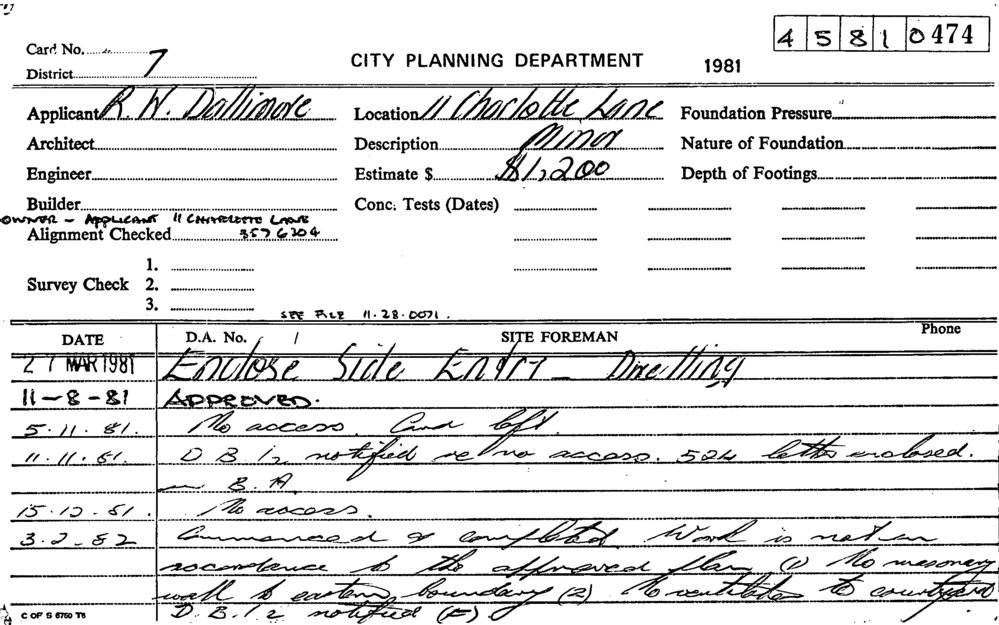 4 5 8 1 0474
Card No.
District 7
CITY PLANNING DEPARTMENT 1981
Applicant R. W. Dallimore Location 11 Charlotte Lane Foundation Pressure
Architect Description Minor Nature of Foundation
Engineer Estimate $ $1,200 Depth of Footings
Builder Conc. Tests (Dates)
OWNER - APPLICANT 11 CHARLOTTE LANE
Alignment Checked 3576204
1.
Survey Check 2.
3.
SEE FILE 11.28.0071.
DATE D.A. No. SITE FOREMAN Phone
27 MAR 1981 Enclose Side Entry - Dwelling
11-8-81 APPROVED.
5.11.81. No access. Card left.
11.11.81. D B I 2 notified re no access. 524 letter enclosed.
in B.A.
15.12.81. No access.
3.2.82 Commenced & completed Work is not in
accordance to the approved plan (1) No masonry
wall to eastern boundary (2) No ventilation to courtyard
D.B.I 2 notified (E)
C OF S 6760 T6